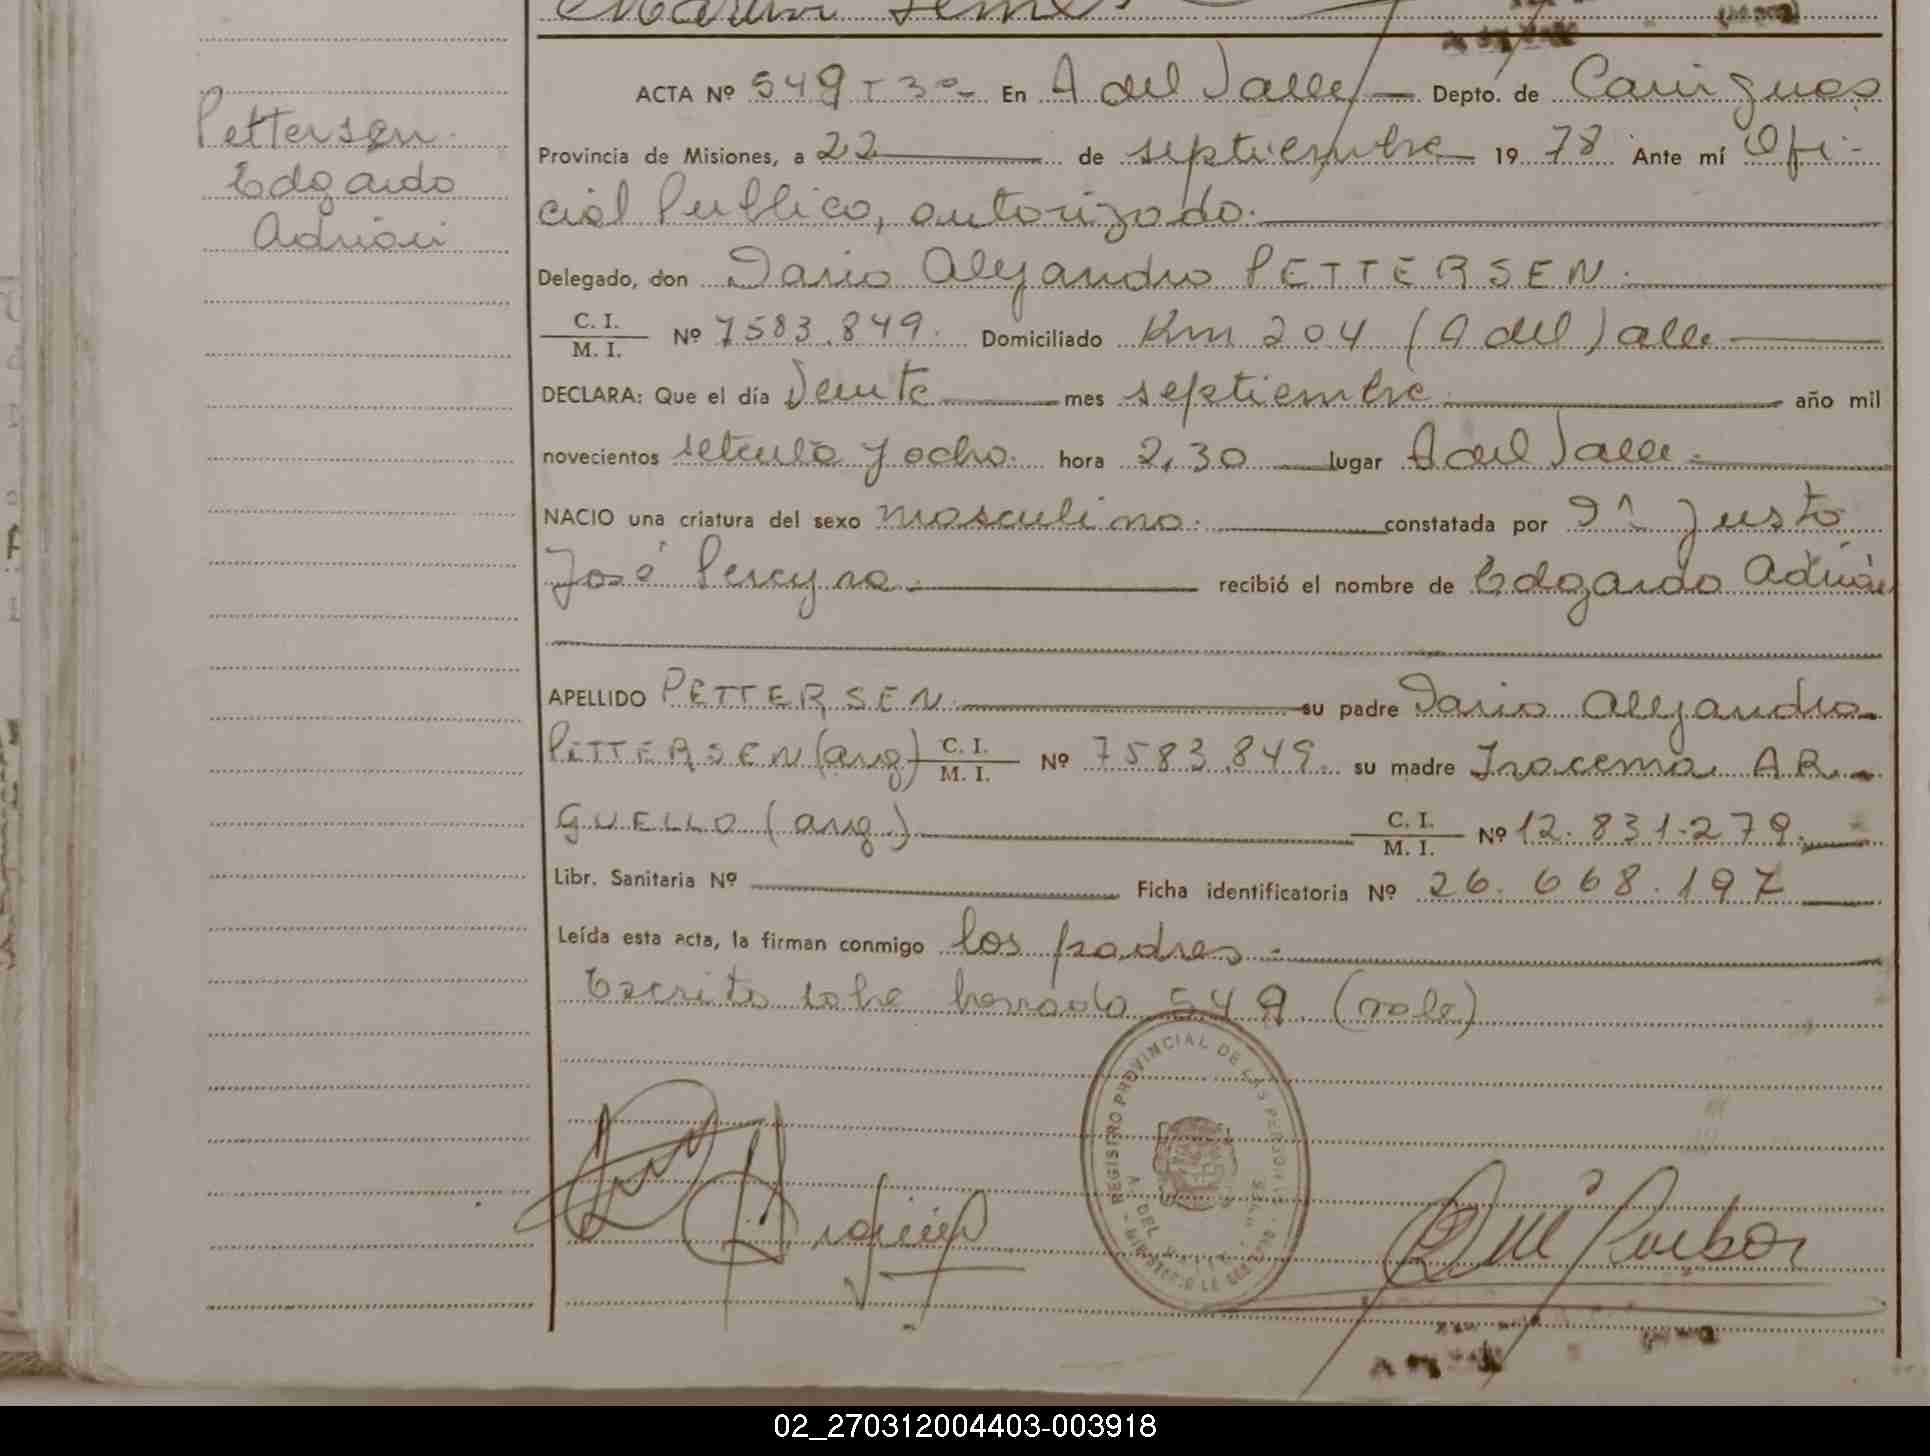 Pettersen
Edgardo
Adrián
ACTA Nº 549 T 3º- En A del Valle Depto. de Cainguas
Provincia de Misiones, a 22 de septiembre 19 78 Ante mí Ofi-
cial Publico, autorizado.
Delegado, don Dario Alejandro PETTERSEN.
C. I.
M. I. Nº 7583.849. Domiciliado Km 204 (A del Valle
DECLARA: Que el día Veinte mes septiembre año mil
novecientos setenta y ocho. hora 2,30 lugar A del Valle.
NACIO una criatura del sexo masculino. constatada por Dr Justo
José Pereyra. recibió el nombre de Edgardo Adrián
APELLIDO PETTERSEN su padre Dario Alejandro
PETTERSEN (arg) C. I. M. I. Nº 7583.849. su madre Iracema AR-
GUELLO (arg.) C. I. M. I. Nº 12.831.279.
Libr. Sanitaria Nº Ficha identificatoria Nº 26.668.197
Leída esta acta, la firman conmigo los padres.
Escrito sobre borrado 549. (vale)
REGISTRO PROVINCIAL DE LAS PERSONAS
A. DEL VALLE
02_270312004403-003918